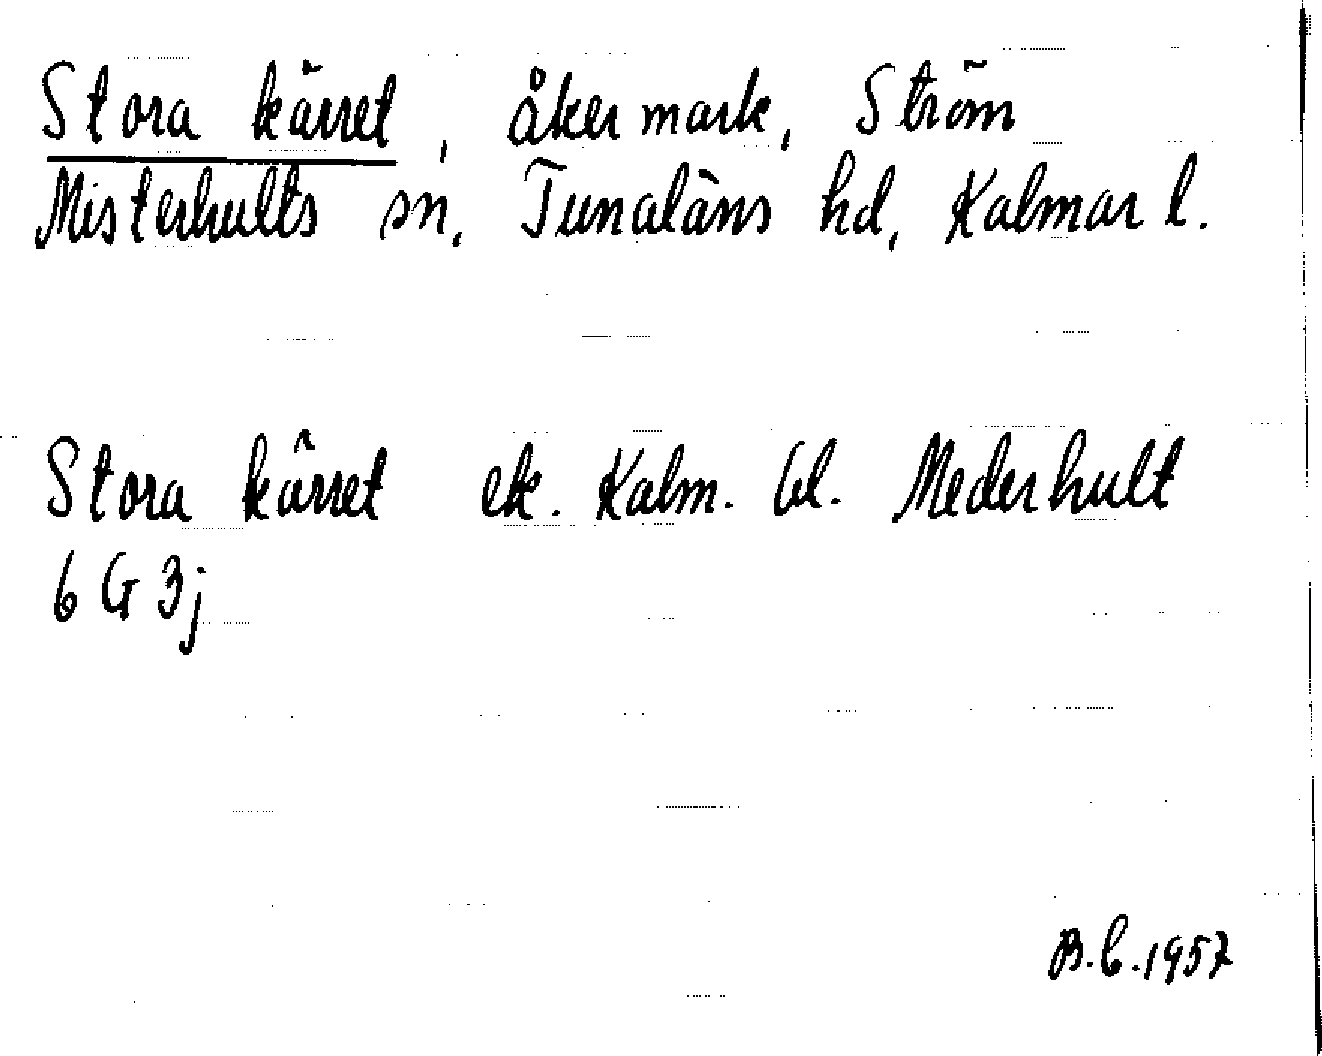 Stora kärret, åkermark, Ström
Misterhults sn, Tunaläns hd, Kalmar l.
Stora kärret ek. Kalm. bl. Mederhult
6 G 3j
B.C.1957